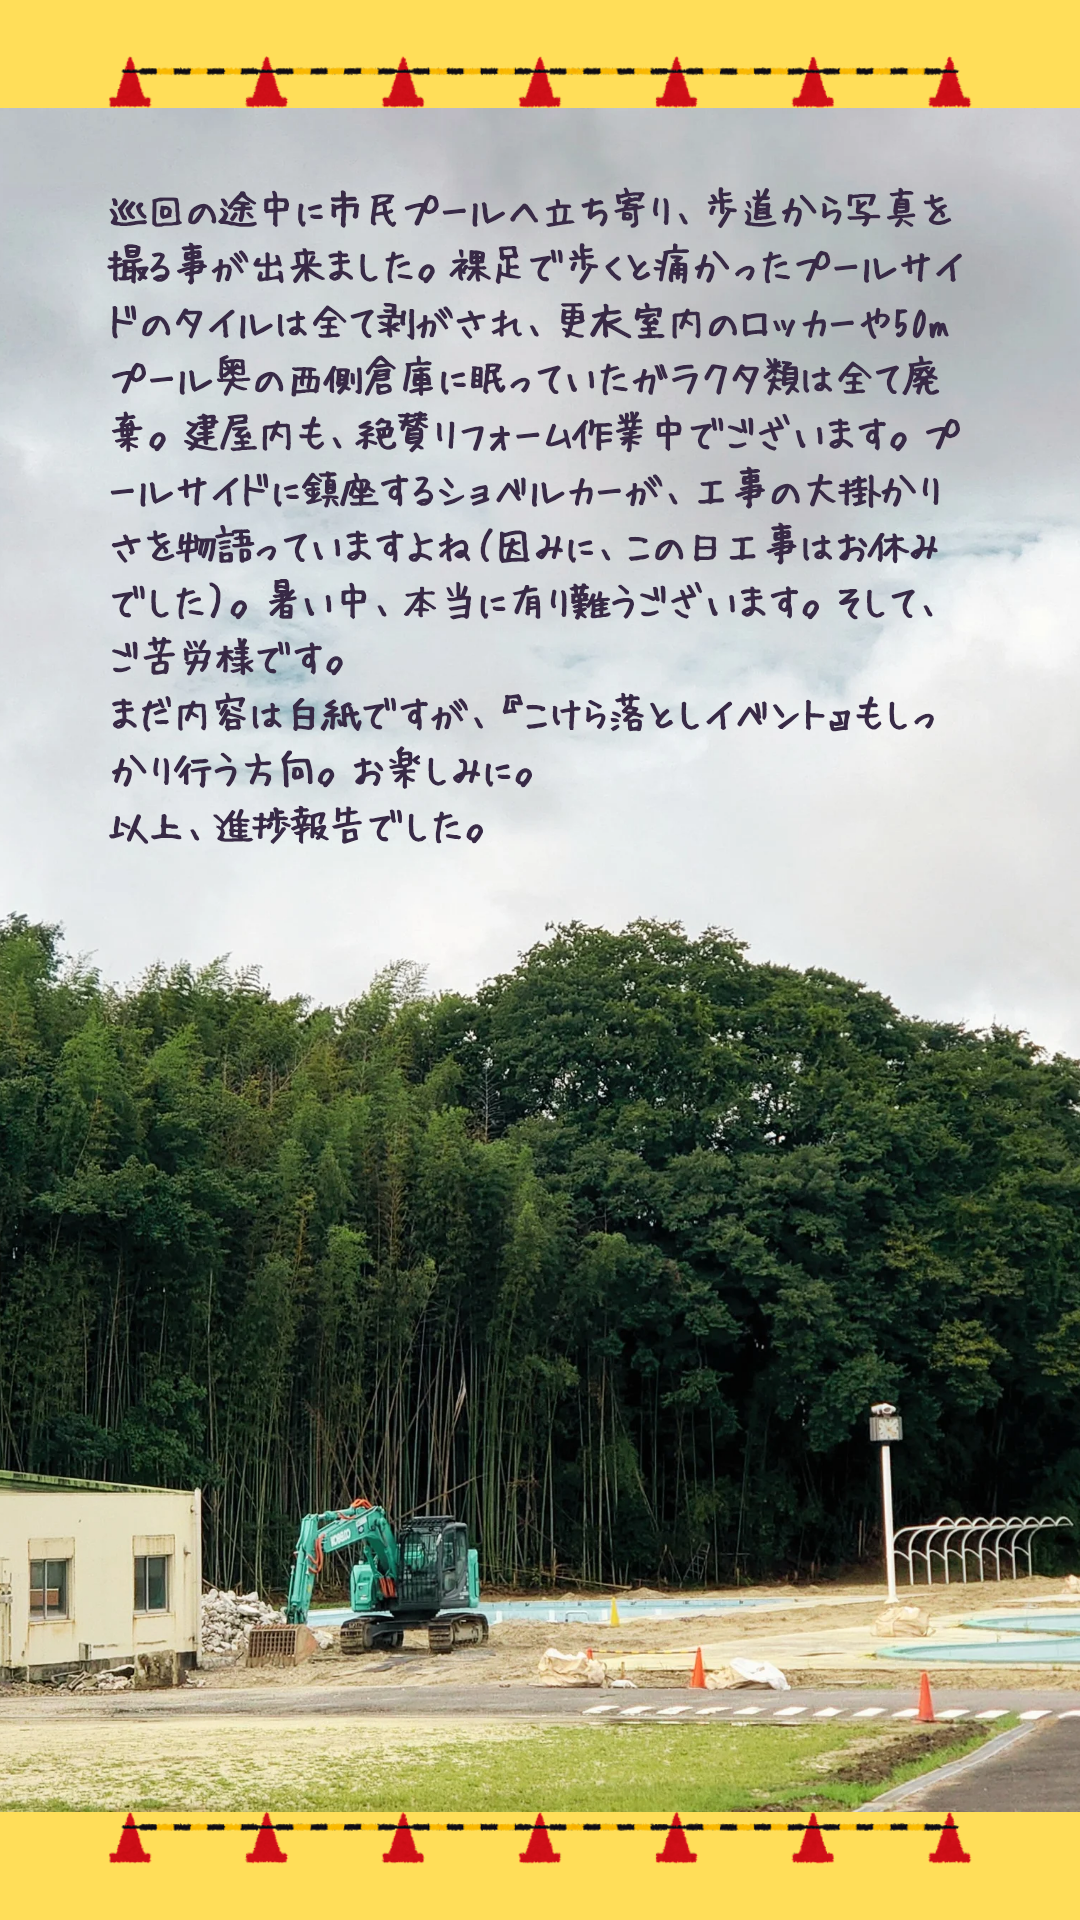 巡回の途中に市民プールへ立ち寄り、歩道から写真を
撮る事が出来ました。裸足で歩くと痛かったプールサイ
ドのタイルは全て剥がされ、更衣室内のロッカーや50m
プール奥の西側倉庫に眠っていたガラクタ類は全て廃
棄。建屋内も、絶賛リフォーム作業中でございます。プ
ールサイドに鎮座するショベルカーが、工事の大掛かり
さを物語っていますよね(因みに、この日工事はお休み
でした)。暑い中、本当に有り難うございます。そして、
ご苦労様です。
まだ内容は白紙ですが、『こけら落としイベント』もしっ
かり行う方向。お楽しみに。
以上、進捗報告でした。
KOBELCO